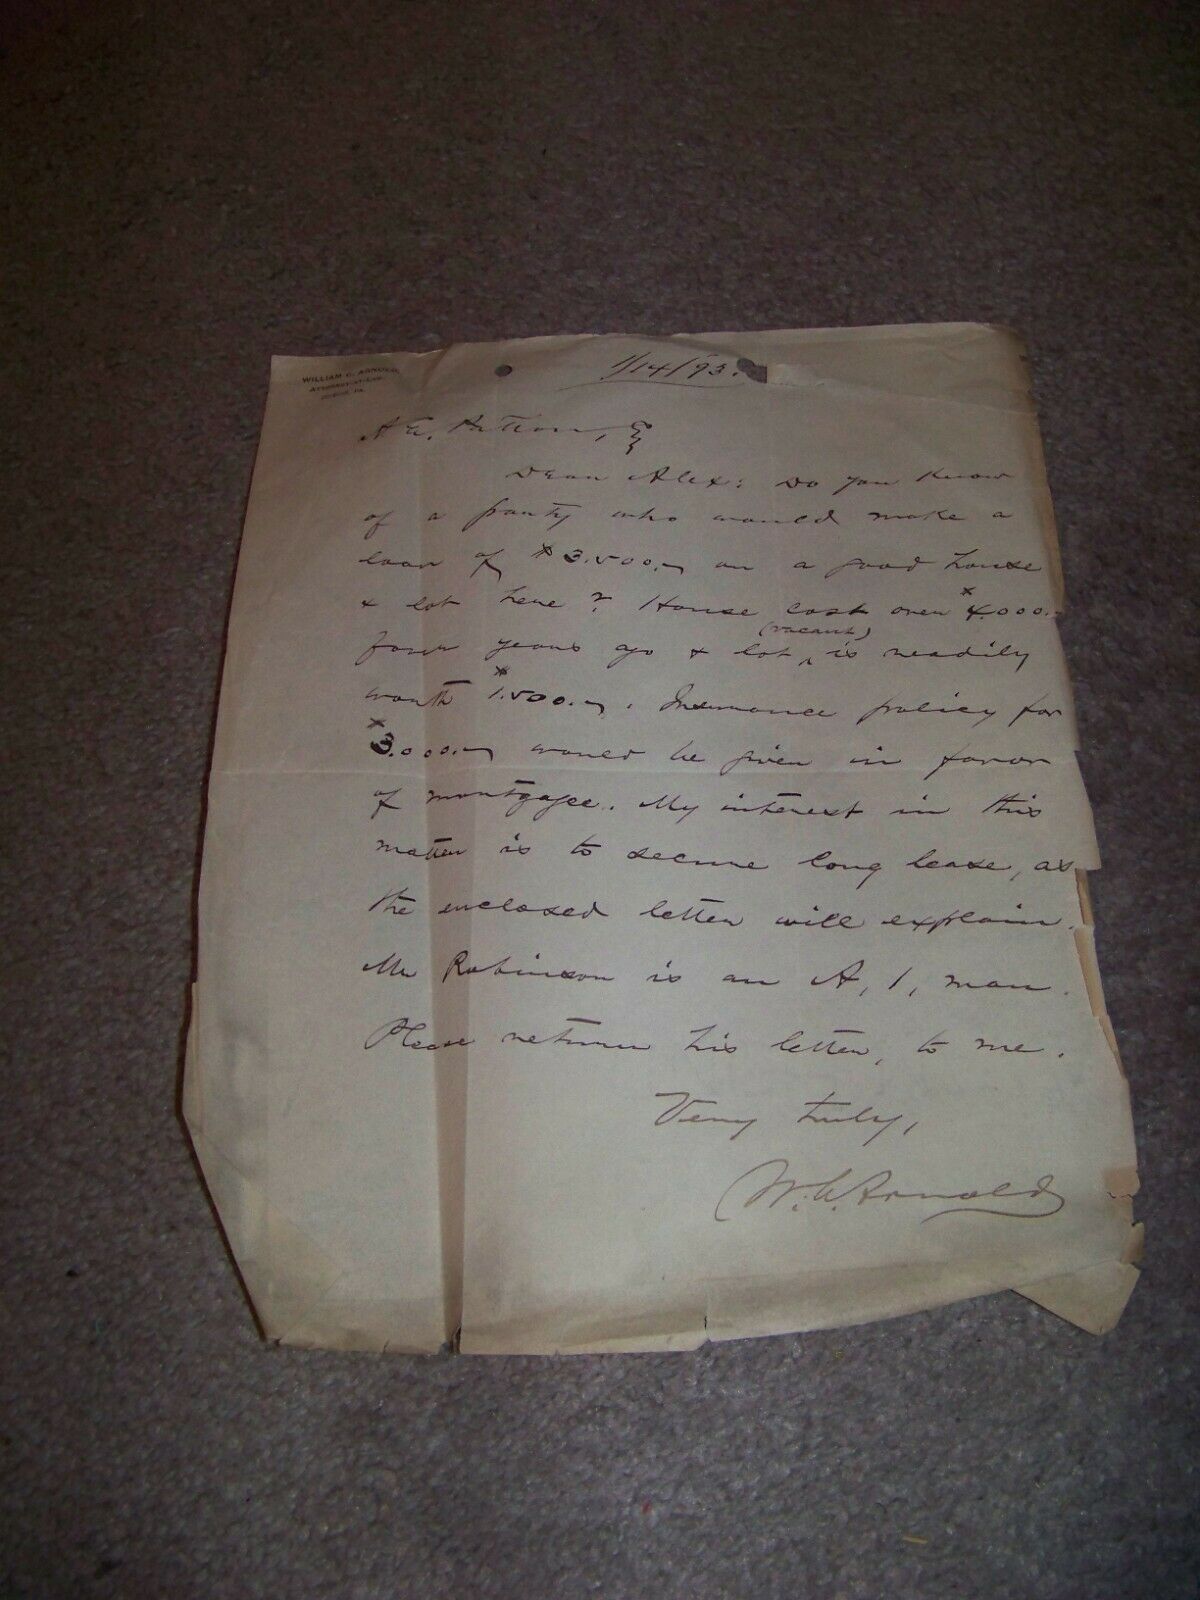 WILLIAM C. ARNOLD,
ATTORNEY-AT-LAW,
PA.
1/14/93.
A. E. Patton, Esq
Dear Alex: Do you know
of a party who would make a
loan of $3.500.— on a good house
& lot here? House cost over $4.000.—
four years ago & lot (vacant) is readily
worth $1.500.—. Insurance policy for
$3.000.— would be given in favor
of mortgagee. My interest in this
matter is to secure long lease, as
the enclosed letter will explain.
Mr Robinson is an A, 1, man.
Please return his letter, to me.
Very truly,
W. C. Arnold